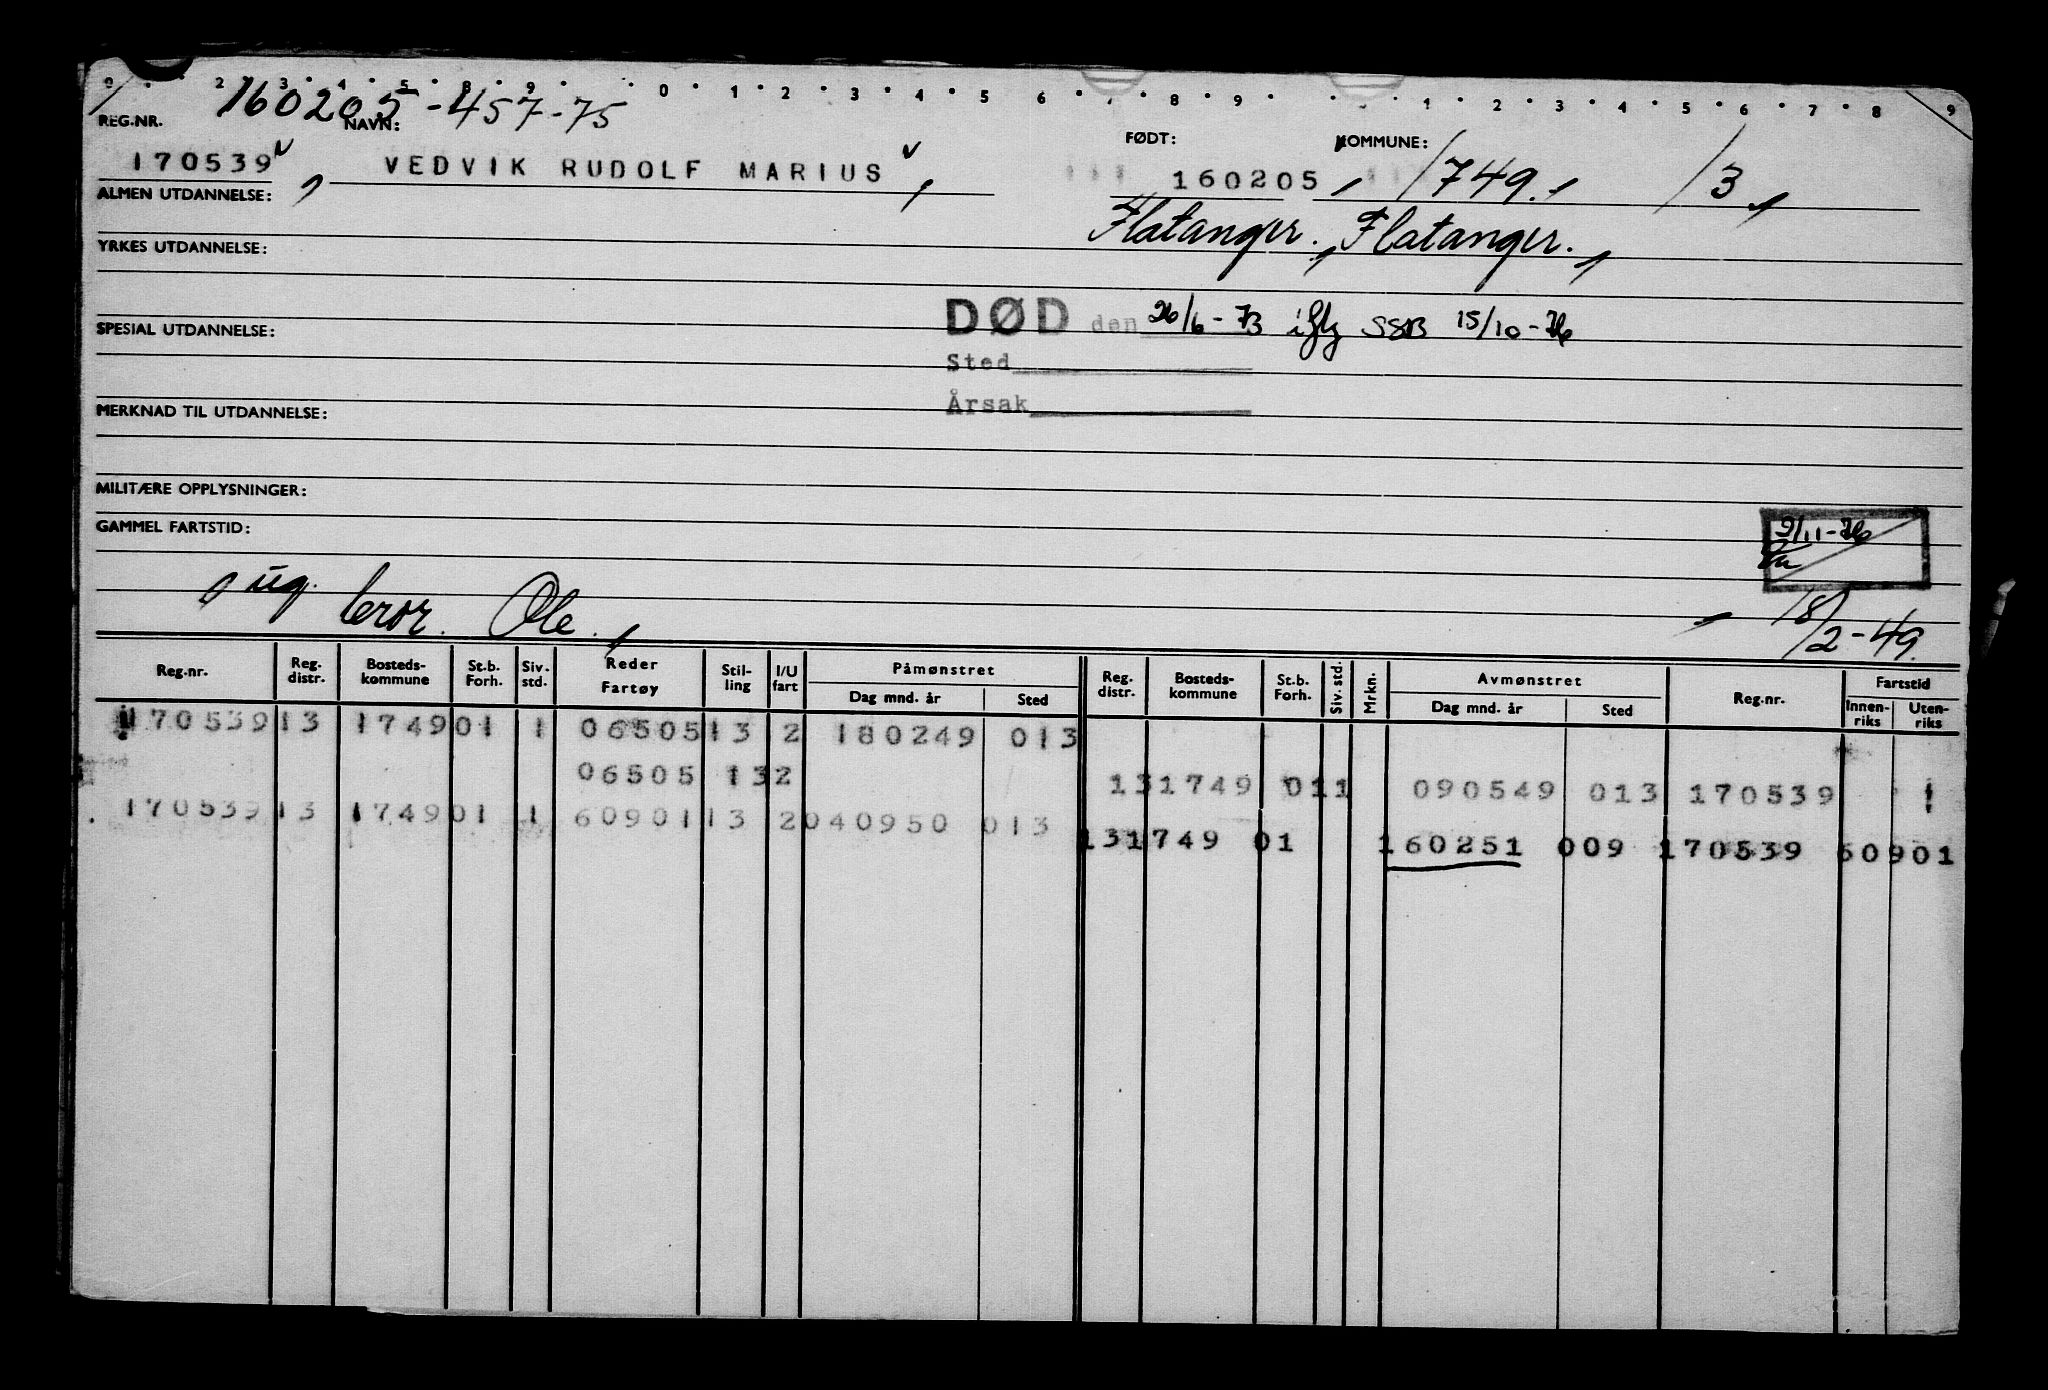 160205-457-75
REG.NR. NAVN: FØDT: KOMMUNE:
170539 VEDVIK RUDOLF MARIUS 160205 1749. 13
ALMEN UTDANNELSE: Flatanger. Flatanger.
YRKES UTDANNELSE:
DØD den 26/6-73 iflg SSB 15/10-76
SPESIAL UTDANNELSE:
Sted
Årsak
MERKNAD TIL UTDANNELSE:
MILITÆRE OPPLYSNINGER:
GAMMEL FARTSTID:
9/11-76
ug. bror. Ole. 18/2-49.
Reg.nr. Reg. distr. Bosteds-kommune St.b. Forh. Siv. std. Reder Fartøy Stil-ling I/U fart Påmønstret Dag mnd. år Sted Reg. distr. Bosteds-kommune St.b. Forh. Siv. std. Mrkn. Avmønstret Dag mnd. år Sted Reg.nr. Fartstid Innen-riks Uten-riks
170539 13 1749 01 1 06505 13 2 180249 013
06505 13 2 13 1749 01 1 090549 013 170539 1
170539 13 1749 01 1 60901 13 2 040950 013
13 1749 01 160251 009 170539 60901